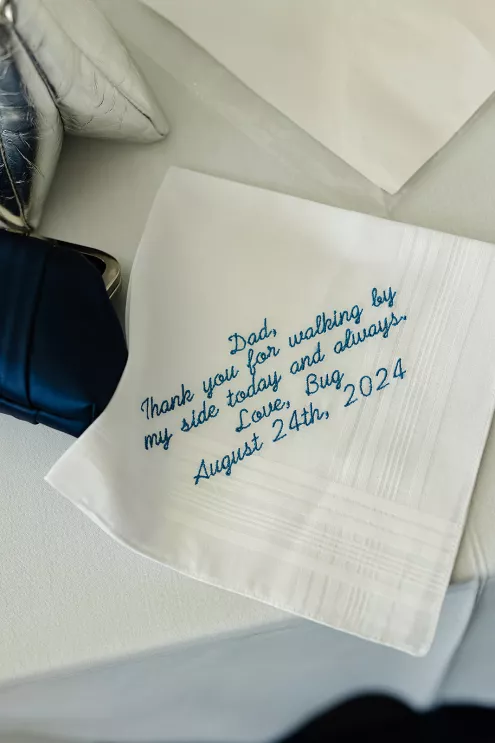 Dad,
Thank you for walking by
my side today and always.
Love, Bug
August 24th, 2024